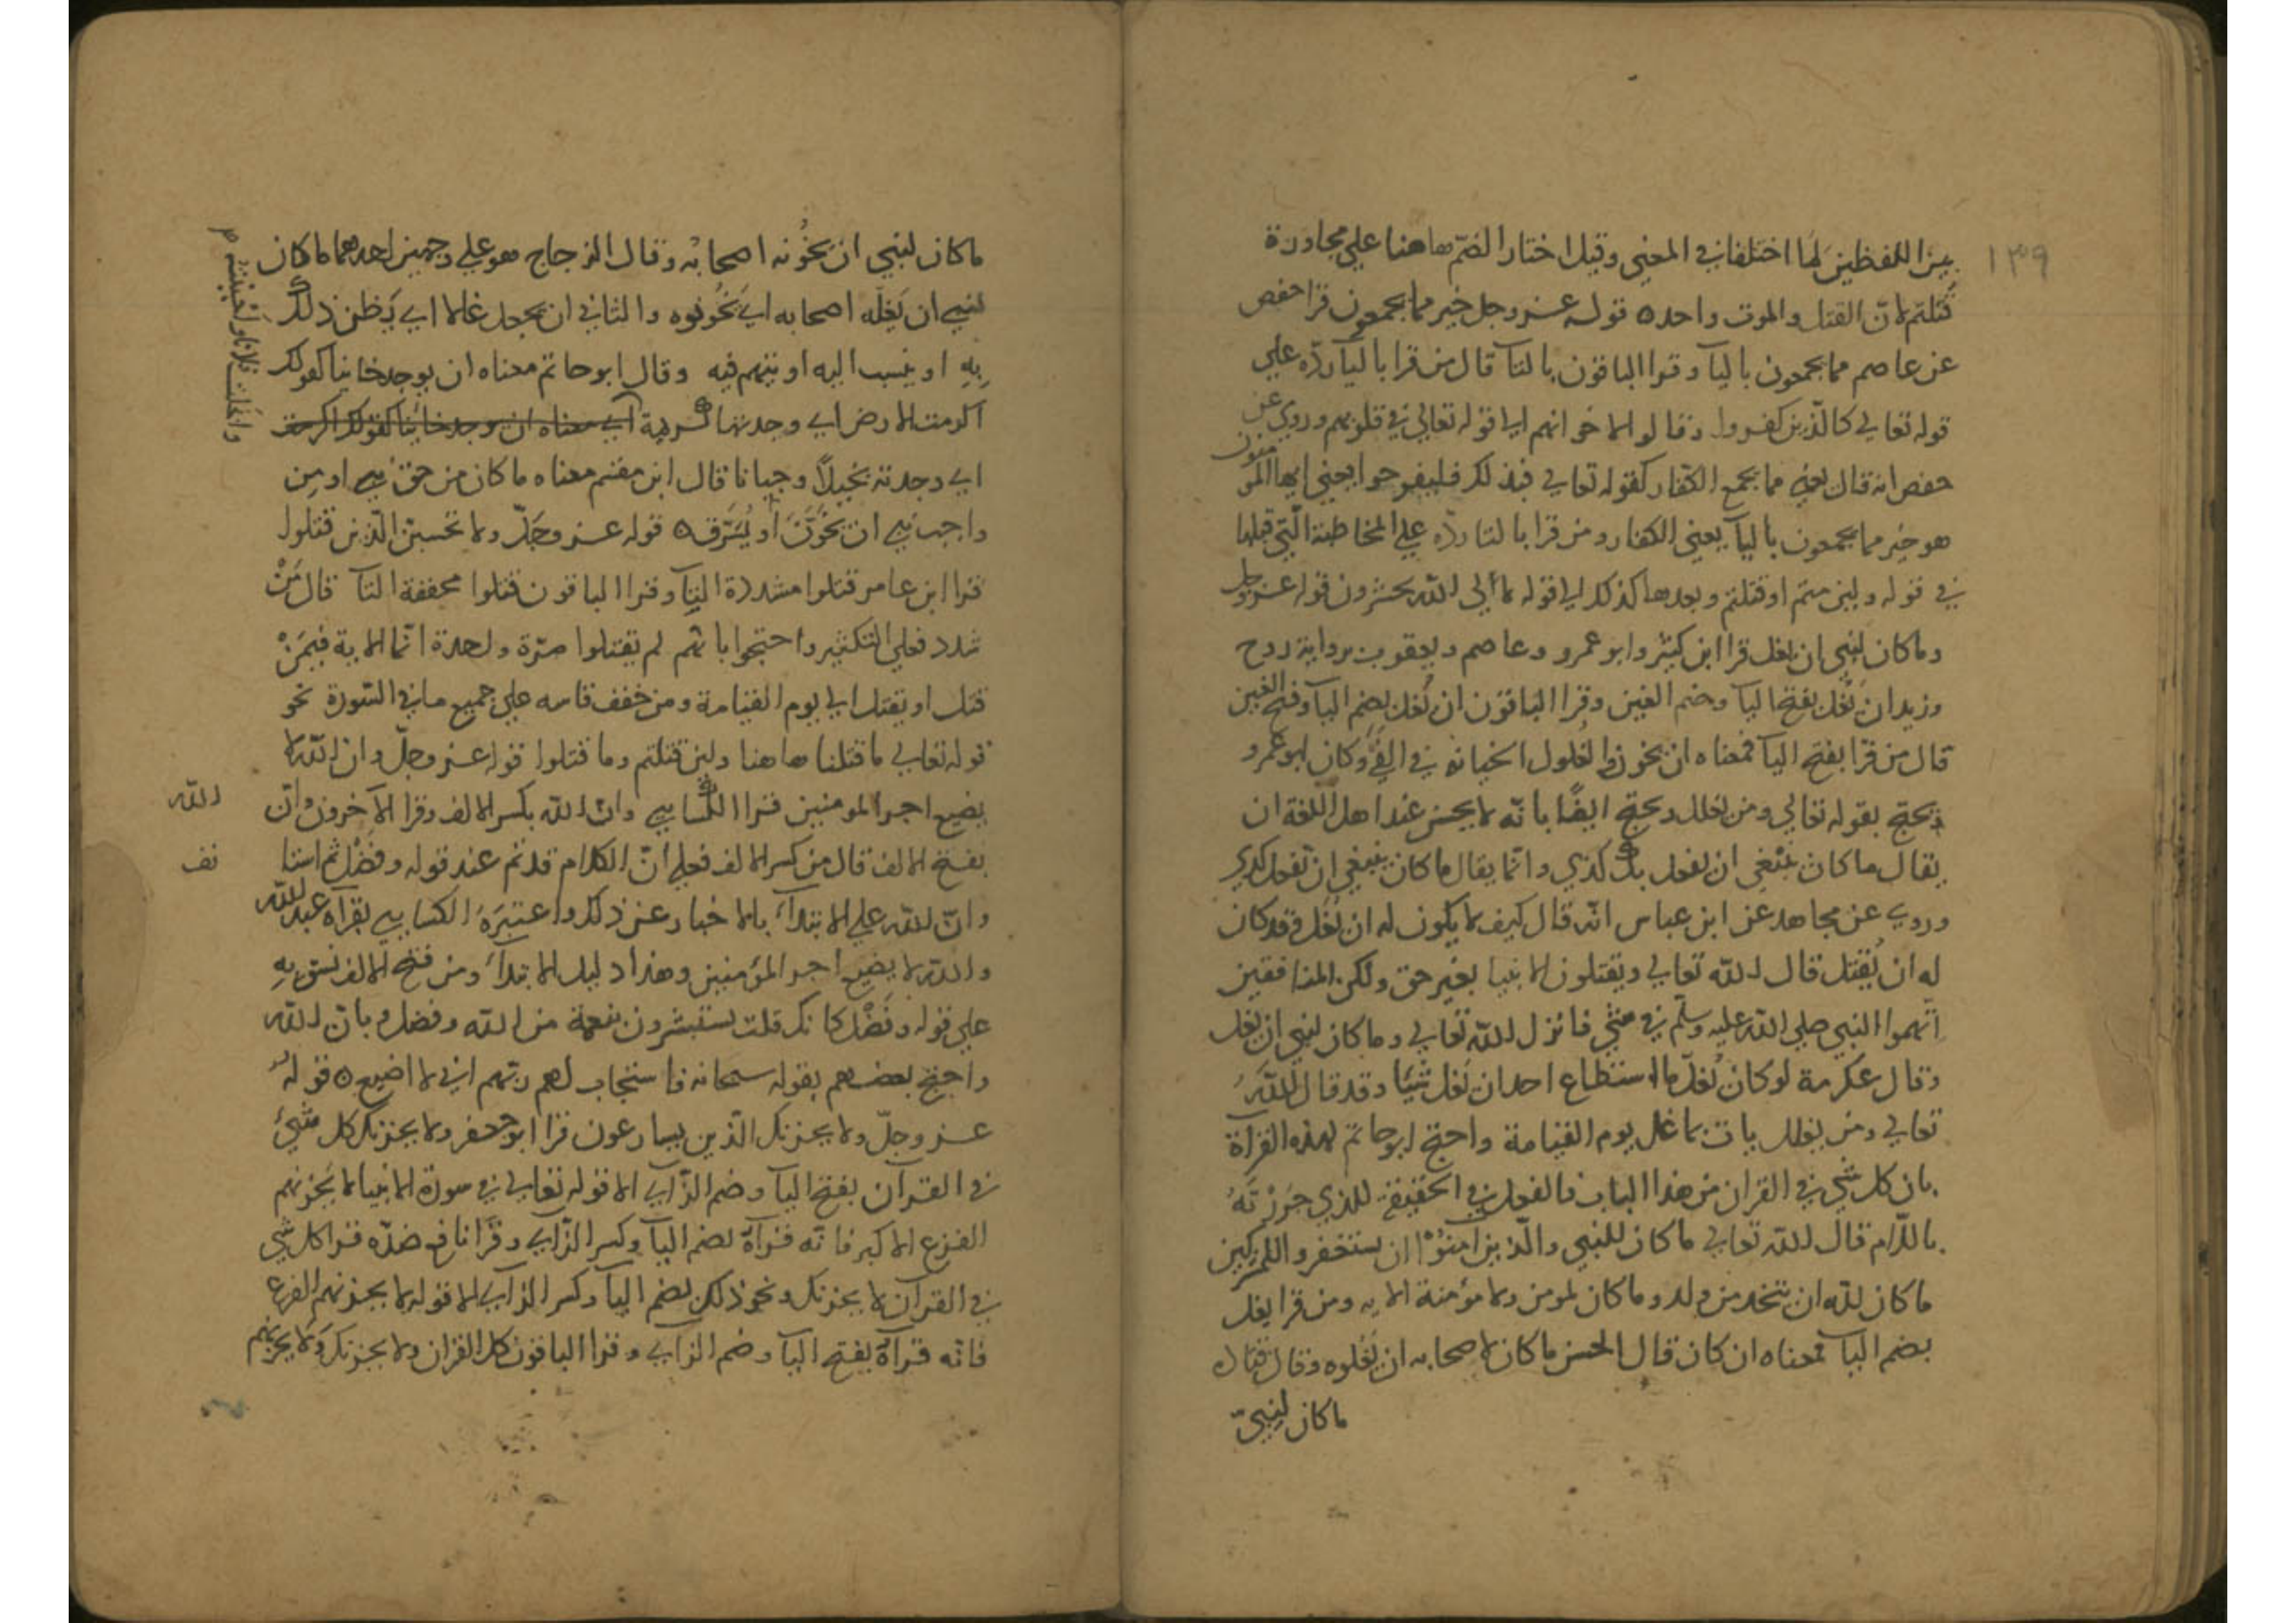 ١٣٩
بين اللفظين لما اختلفا في المعني وقيل اختار الضمّ هاهنا علي مجاورة
قُتلتم لانّ القتل والموت واحد ه قوله عز وجل خير مما يجمعون قرا حفص
عن عاصم مما يجمعون باليآ وقرا الباقون بالتآ قال من قرا باليآ ردّه علي
قوله تعالي كالّذين كفروا وقالوا لاخوانهم الي قوله تعالي في قلوبهم وروي عن
حفص انه قال يعني مما يجمع الكفار كقوله تعالي فبذلك فليفرحوا يعني ايها المومنون
هو خير مما يجمعون باليآ يعني الكفار ومن قرا بالتا ردّه علي المخاطبة الّتي قبلها
في قوله ولين متم او قتلتم وبعدها كذلك الي قوله لالي اللّه تحشرون قوله عز وجل
وما كان لنبي ان يغل قرا ابن كثير وابو عمرو وعاصم ويعقوب برواية روح
وزيد ان يَغُل بفتح اليآ وضم الغين وقرا الباقون ان يُغل بضم اليآ وفتح الغين
قال من قرا بفتح اليآ فمعناه ان يخون والغلول الخيانة في الفَيْ وكان ابو عمرو
يحتج بقوله تعالي ومن يغلل ويحتج ايضًا بانّه لا يحسن عند اهل اللغة ان
يقال ما كان ينبغي ان يفعل بك كذي وانّما يقال ما كان ينبغي ان تفعل كذي
وروي عن مجاهد عن ابن عباس انّه قال كيف لا يكون له ان يُغل وقد كان
له ان يُقتل قال اللّه تعالي ويقتلون الانبيا بغير حق ولكن المنافقين
اتّهموا النبي صلي اللّه عليه وسلّم في شئ فانزل اللّه تعالي وما كان لنبي ان يغل
وقال عكرمة لو كان يُغلّ ما استطاع احد ان يَغل شيًا وقد قال اللّه
تعالي ومن يغلل يات بما غل يوم القيامة واحتج ابو حاتم لهذه القرآة
بان كل شي في القران من هذا الباب فالفعل في الحقيقة للذي جَرَرْتَهُ
باللّام قال اللّه تعالي ما كان للنبي والّذين امنُوْا ان يستغفروا للمشركين
ما كان للّه ان يتخذ من ولد وما كان لمومن ولا مؤمنة الايه ومن قرا يغل
بضم اليآ فمعناه ان كان قال الحسن ما كان لاصحابه ان يَغُلوه وقال قتاده
ما كان لنبيّ
ما كان لنبي ان يَخُونه اصحابُه وقال الزجاج هو علي وجهين احدهما ما كان
لنبي ان يَغلّه اصحابه اي يَخُونوه والثاني ان يجعل غالا اي يَظن ذلك
بِهِ او ينسب اليه او يتهم فيه وقال ابو حاتم معناه ان يوجد خاينا كقولك
اكرمت الارض اي وجدتها كريمة اي معناه ان يوجد خائنا كقولك اكرمت
اي وجدته بخيلاً وجبانا قال ابن مقسم معناه ما كان من حق نبي او مِن
واجب نبي ان يخَوَّنَ او يُسَرَّق ه قوله عز وجَلّ ولا تحسبنّ الّذين قتلوا
قرا ابن عامر قتلوا مشددة التآ وقرا الباقون قتلوا مخففة التآ قال مَنْ
شدد فعلي التكثير واحتجوا بانّهم لم يقتلوا مرّة واحدة انّما الاية فيمَنْ
قتل او يقتل الي يوم القيامة ومن خفف قاسه علي جميع ما في السّورة نحو
قوله تعالي ما قتلنا هاهنا ولين قتلتم وما قتلوا قوله عز وجلّ وان اللّه لا
يضيع اجر المومنين قرا الكسايي وانّ اللّه بكسر الالف وقرا الآخرون وانّ
بفتح الالف قال من كسر الالف فعلي انّ الكلام قد تم عند قوله وفضْلٍ ثم استا
نف
وانّ اللّه علي الابتدآ بالاخبار عن ذلك واعتَبَرَهُ الكسايي بقرآه عبد اللّه
واللّه لا يضيع اجر المؤمنين وهذا دليل الابتدآ ومن فتح الالف نسق بهِ
علي قوله وفَضْل كانك قلت يستبشرون بنعمة من اللّه وفضل وبانّ اللّه
واحتج بعضهم بقوله سبحانه فاستجاب لهم ربّهم اني لا اضيع ه قولهُ
عز وجلّ ولا يحزنك الّذين يسارعون قرا ابو جعفر ولا يحزنك كل شئ
في القرآن بفتح اليآ وضم الزّاي الا قوله تعالي في سورة الانبيا لا يُحْزِنهم
الفزع الاكبر فانّه قرآهُ بضم اليآ وكسر الزّاي وقَرَأ نافع ضدّه قرا كل شي
في القرآن لا يحزنك ونحو ذلك بضم اليآ وكسر الزاي الا قوله لا يحزنهم الفزع
فانّه قرآهُ بفتح اليآ وضم الزاي وقرا الباقون كل القران ولا يحزنك ولا يحزنهم
اللّه